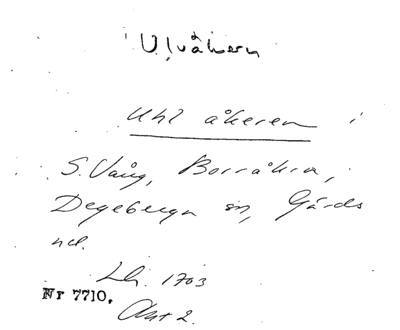 Ulvåkern
Uhl åkeren i
S. Vång, Borråkra,
Degeberga sn, Gärds
hd.
Lh. 1703
Nr 7710.
Akt 2.